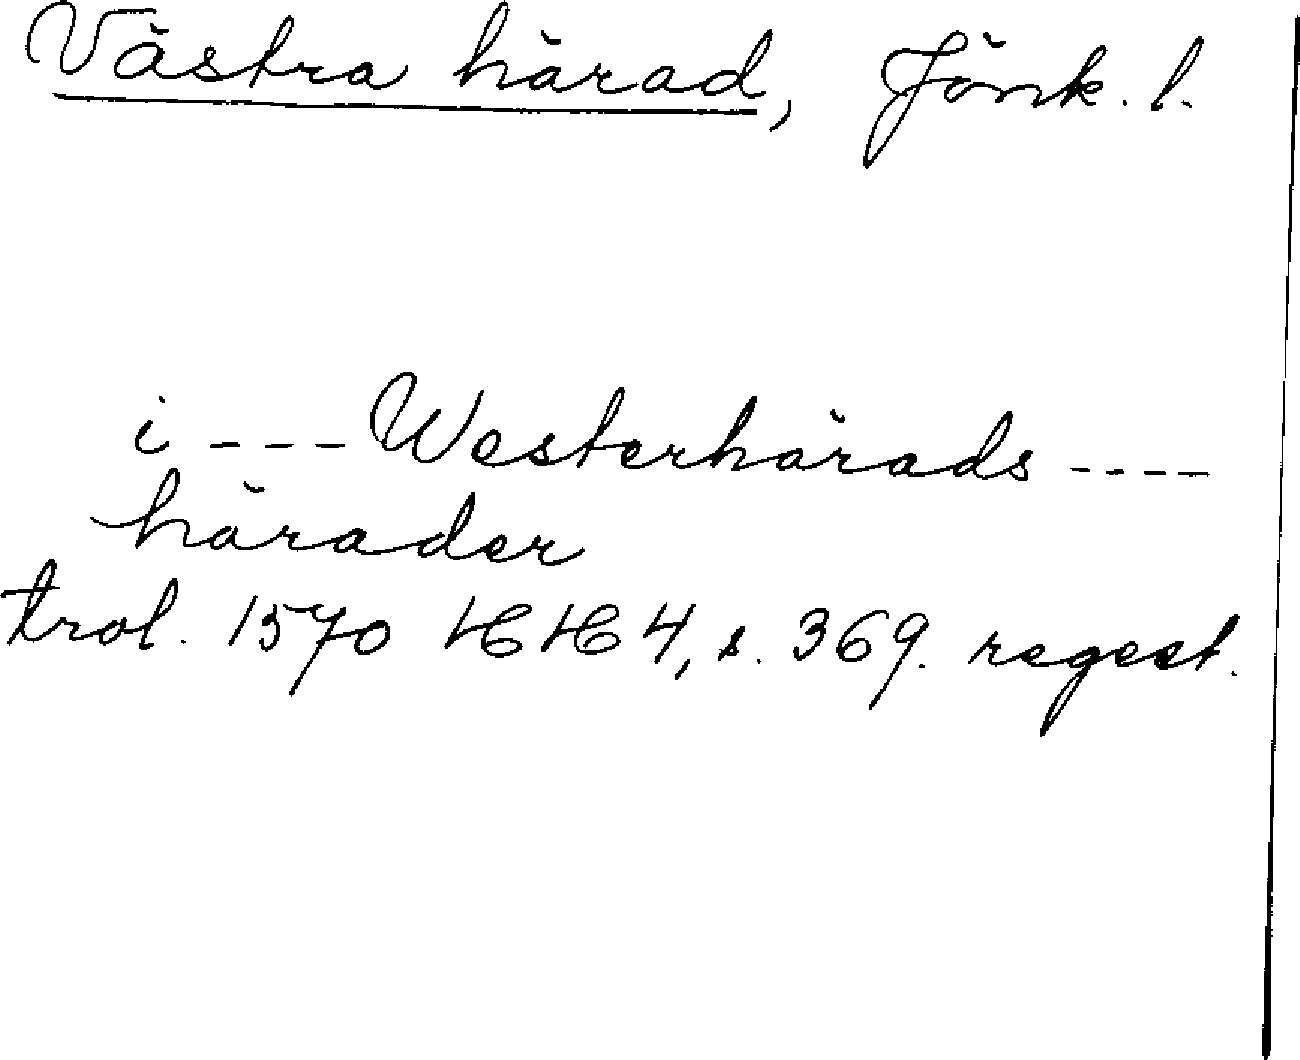 Västra härad, Jönk. l.
i --- Westerhärads ----
härader
trol. 1570 HH 4, s. 369. regest.